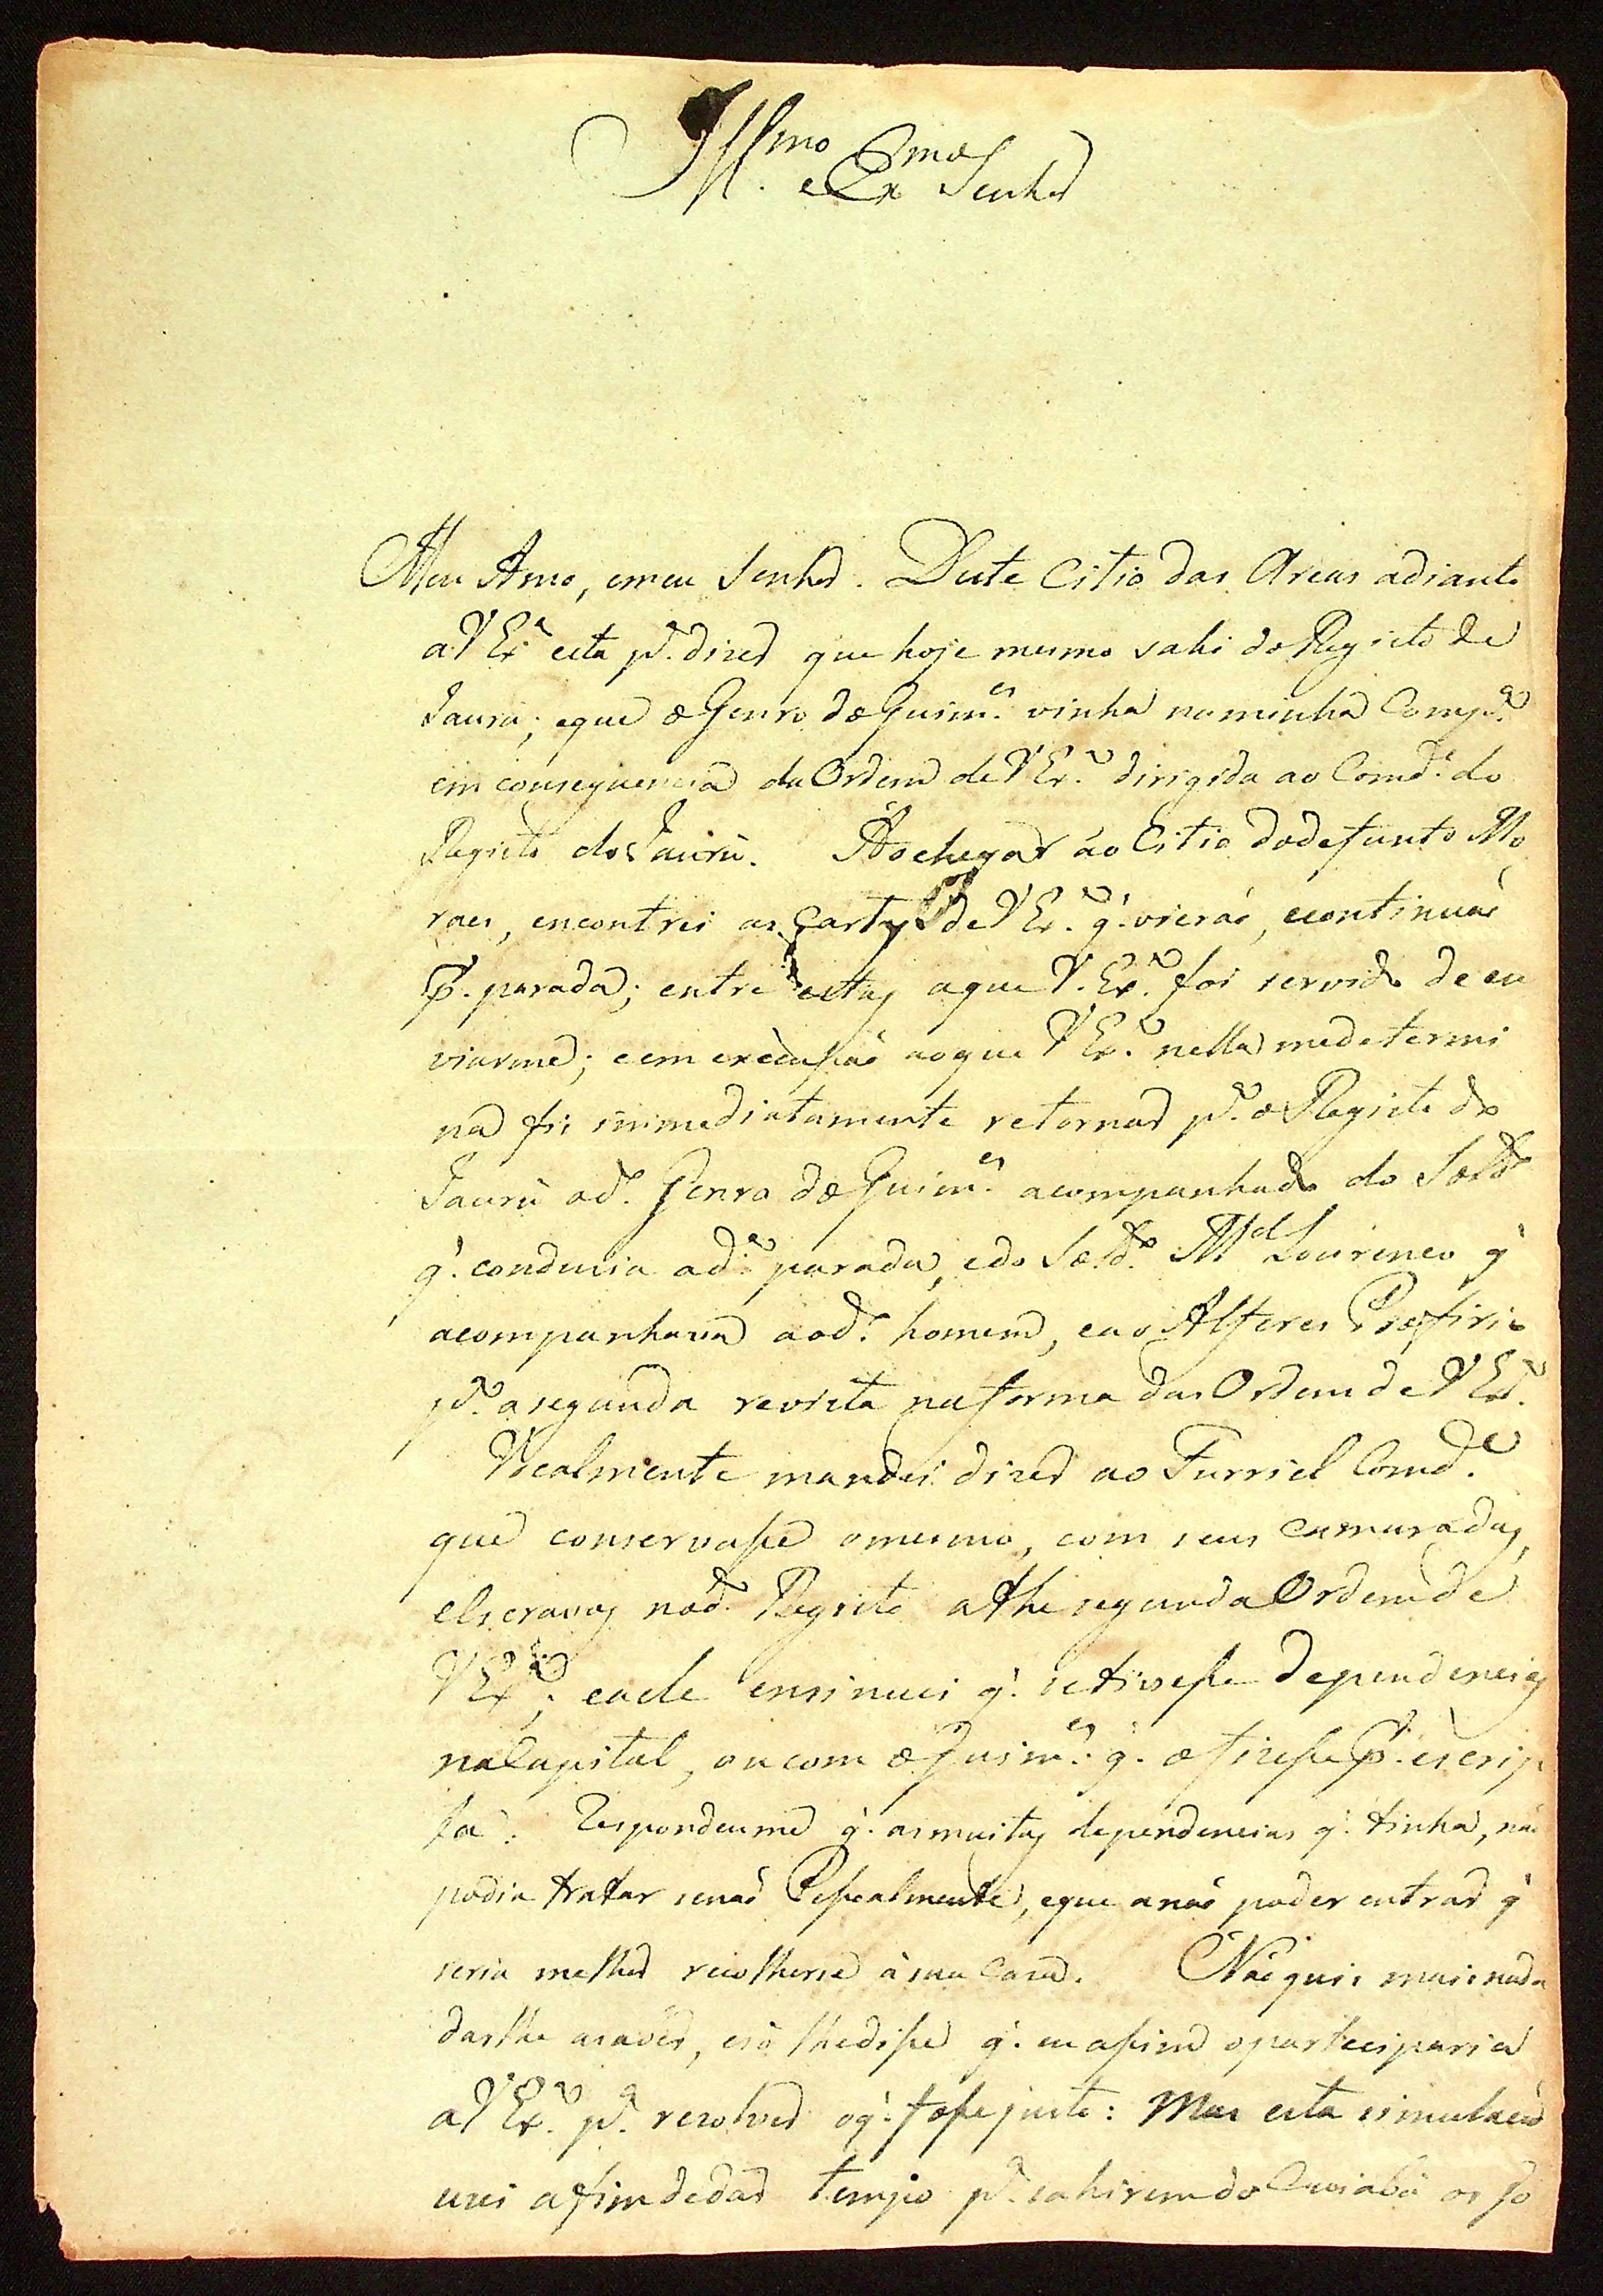 Illmo. e Exmo Senhor
Meu Amo, emeu Senhor. Deste Citio das Areas adianto
aVExa esta pa. dizer que hoje mesmo sahi do Registo de
Jauru; eque o Genro do Guimes. vinha naminha Compa.
em consequencia da Ordem deVExa. dirigida ao Comde. do
Registo do Jaurú. Ao chegar áo Citio do defunto Mo
raes, encontrei as Cartas de VExa. q̃. vieraó, econtinuaó
p. parada; entre estas aque V. Exa. foi servido de en
viarme; e em execusaó aoque VExa. nella medetermi
na fis immediatamente retornar pa. o Registo do
Jaurú od. Genro do Guimes. acompanhado do Soldo
q̃. conduzia ada. parada, edo Soldo. Mel Lourenco q̃
acompanhava aodo. homem, eao Alferes Porfirio
pa. asegunda revista naforma das Ordens de VExa.
Vocalmente mandei dizer ao Furriel Comde.
que conservase omesmo, com seus camaradas,
eEscravos nod. Registo athe segunda Ordem de
VExa.; eaele ensinuei q̃. setivese dependencias
naCapital, oucom o Guimes. q̃. ofizese p. escrip
ta. Respondeume q̃. asmuitas dependencias q̃. tinha, naó
podia tratar senaó Pesoalmente, eque anaó poder entrar q̃
seria melhor recolherse ásua Casa. Naó quis maisnada
darlhe asaber, esó lhedise q̃. eu asim oparteciparia
aVExa. pa. rezolver oq̃. fose justo: Mas esta simulacaó
uzei afimdedar tempo pa. sahirem do Cuiabá os so